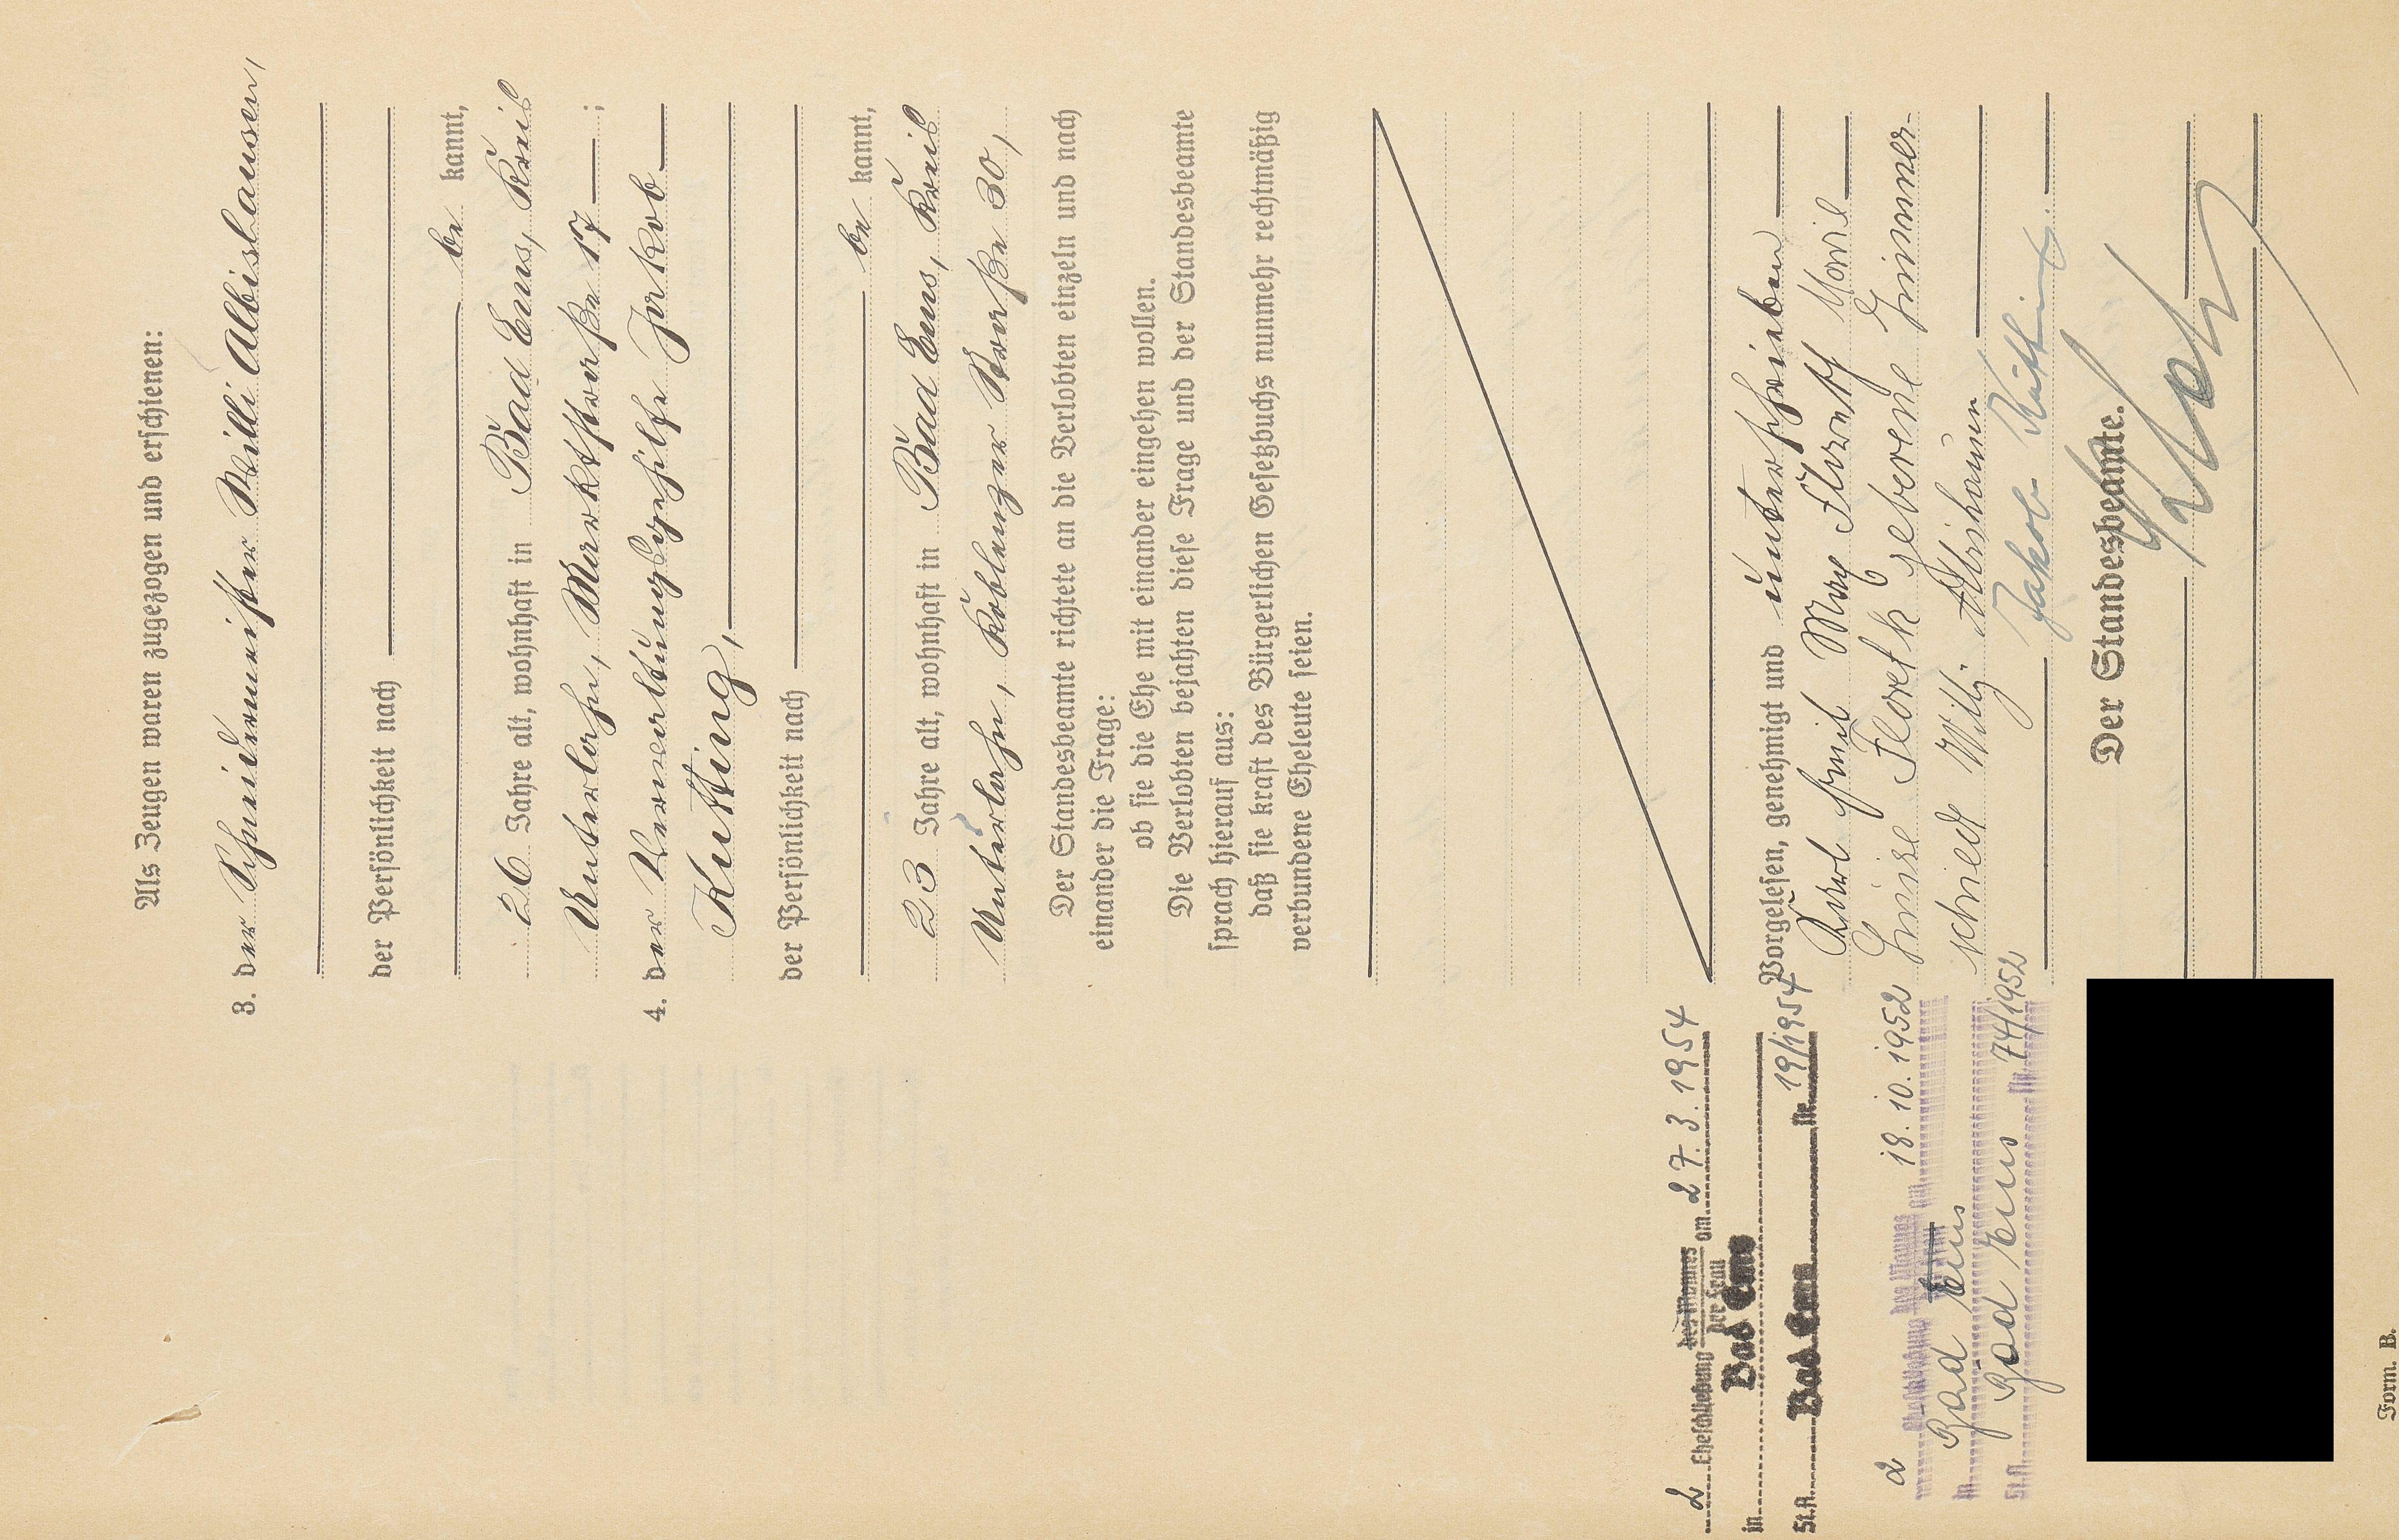 Als Zeugen waren zugezogen und erschienen:
3. der Schneidermeister Willi Albishausen,
der Persönlichkeit nach
be kannt,
26 Jahre alt, wohnhaft in Bad Ems, Kreis
Unterlahn, Marktstraße 17 ;
4. der Verwaltungsgehilfe Jakob
Kutting,
der Persönlichkeit nach
be kannt,
23 Jahre alt, wohnhaft in Bad Ems, Kreis
Unterlahn, Koblenzer Straße 30,
Der Standesbeamte richtete an die Verlobten einzeln und nach
einander die Frage:
ob sie die Ehe mit einander eingehen wollen.
Die Verlobten bejahten diese Frage und der Standesbeamte
sprach hierauf aus:
daß sie kraft des Bürgerlichen Gesetzbuchs nunmehr rechtmäßig
verbundene Eheleute seien.
Vorgelesen, genehmigt und unterschrieben
Karl Emil Max Floreth
Luise Floreth geborene Zimmer-
schied Willi Albishausen
Jakob Kutting.
Der Standesbeamte.
2 Eheschließung des Mannes der Frau am 27.3.1954
in Bad Ems
St.A. Bad Ems Nr. 19/1954
2 Eheschließung des Mannes am 18.10.1952
in Bad Ems
St.A. Bad Ems Nr. 74/1952
Form. B.